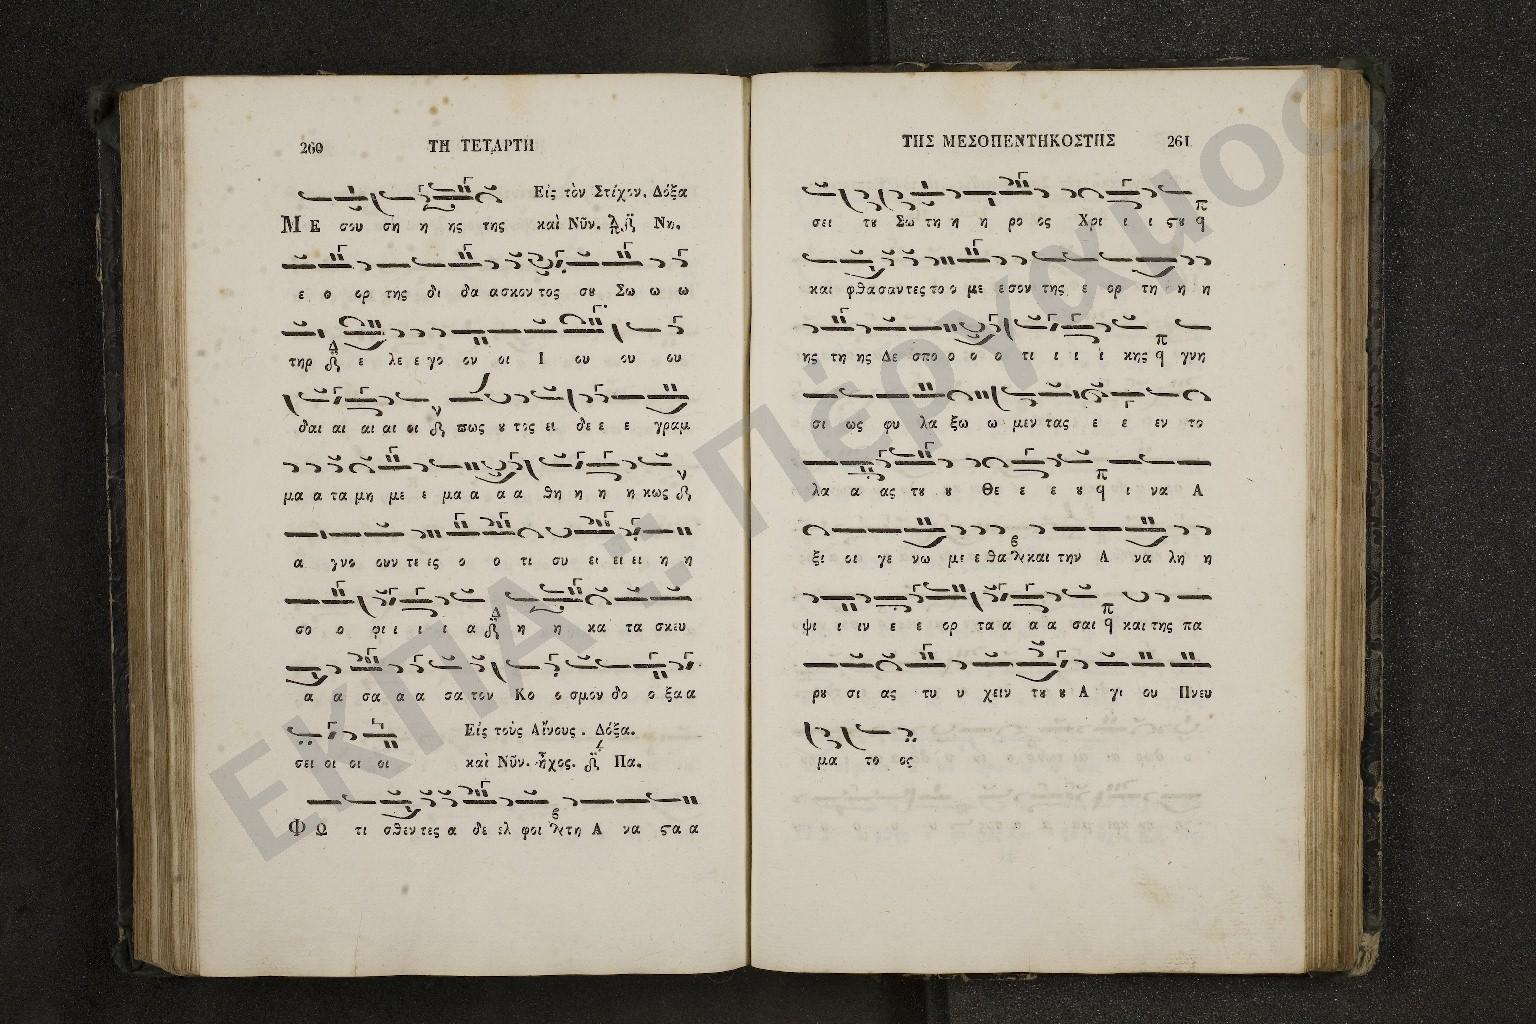 260 ΤΗ ΤΕΤΑΡΤΗ
Εἰς τὸν Στίχον. Δόξα
ΜΕ σου ση η ης της καὶ Νῦν. Νη.
ε ο ορ της δι δα ασκον τος σου Σω ω ω
τηρ ε λε ε γο ον οι Ι ου ου ου
δαι αι αι αι οι πως ου τος ει δε ε ε γραμ
μα α τα μη με ε μα α α α θη η η η κως
α γνο ουν τε ες ο ο τι συ ει ει ει η η
σο ο φι ι ι ι α η η κα τα σκευ
α α σα α α σα τον Κο ο σμον δο ο ξα α
Εἰς τοὺς Αἴνους. Δόξα.
σει οι οι οι καὶ Νῦν. ἦχος. Πα.
ΦΩ τι σθεν τες α δε ελ φοι τη Α να ϛα α
ΤΗΣ ΜΕΣΟΠΕΝΤΗΚΟΣΤΗΣ 261
σει του Σω τη η η ρο ος Χρι ι ι ϛου
και φθα σαν τες το ο με ε σον της ε ορ τη η η
ης τη ης Δε σπο ο ο ο τι ι ι ι κης γνη
σι ως φυ λα ξω ω μεν τας ε ε εν το
λα α ας του ου Θε ε ε ου ι να Α
ξι οι γε νω με ε θα και την Α να λη η
ψι ι ιν ε ε ορ τα α α α σαι και της πα
ρου σι ας τυ υ χειν του ου Α γι ου Πνευ
μα το ος
ΕΚΠΑ :: Πέργαμος